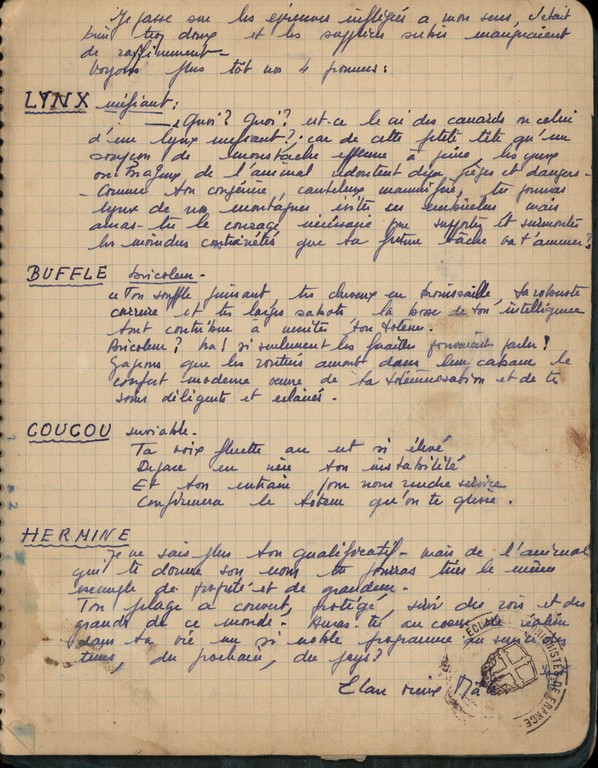 Je passe sur les épreuves infligées a mon sens, c'était
bien trop doux et les supplices subis manquaient
de raffinement -
Voyons plus tôt nos 4 promus :
LYNX méfiant :
- "Quoi? Quoi? est-ce le cri des canards ou celui
d'un lynx méfiant? car de cette petite tête qu'un
soupçon de moustache effleure à peine, les yeux
de l'animal redoutent déjà pièges et dangers -
- Comme ton congénère, cauteleux mammifère, tu pourras
lynx de nos montagnes éviter ces embûches mais
auras-tu le courage nécessaire pour supporter et surmonter
les moindres contrariétés que ta future tâche va t'amener?
BUFFLE bricoleur -
"Ton souffle puissant, tes cheveux en broussaille, ta robuste
carrure et tes larges sabots la base de ton intelligence
tout contribue à mériter ton totem.
Bricoleur? ha! si seulement les pouvaient parler!
Gageons que les routiers auront dans leur cabane le
confort moderne œuvre de ta totémisation et de tes
soins diligents et éclairés.
COUCOU serviable -
Ta voix fluette au ut si élevé
en son instabilité
Et ton entrain pour nous rendre service
Confirmera le totem qu'on te glisse.
HERMINE
Je ne sais plus ton qualificatif - mais de l'animal
qui te donne son nom tu pourras tirer le même
exemple de propreté et de grandeur.
Ton pelage a couvert, protégé, servi des rois et des
grands de ce monde - Auras-tu au cœur de réaliser
dans ta vie un si noble programme au service des
tiens, du prochain, du pays?
Elan vieux
ECLAI UNIONISTES DE FRANCE